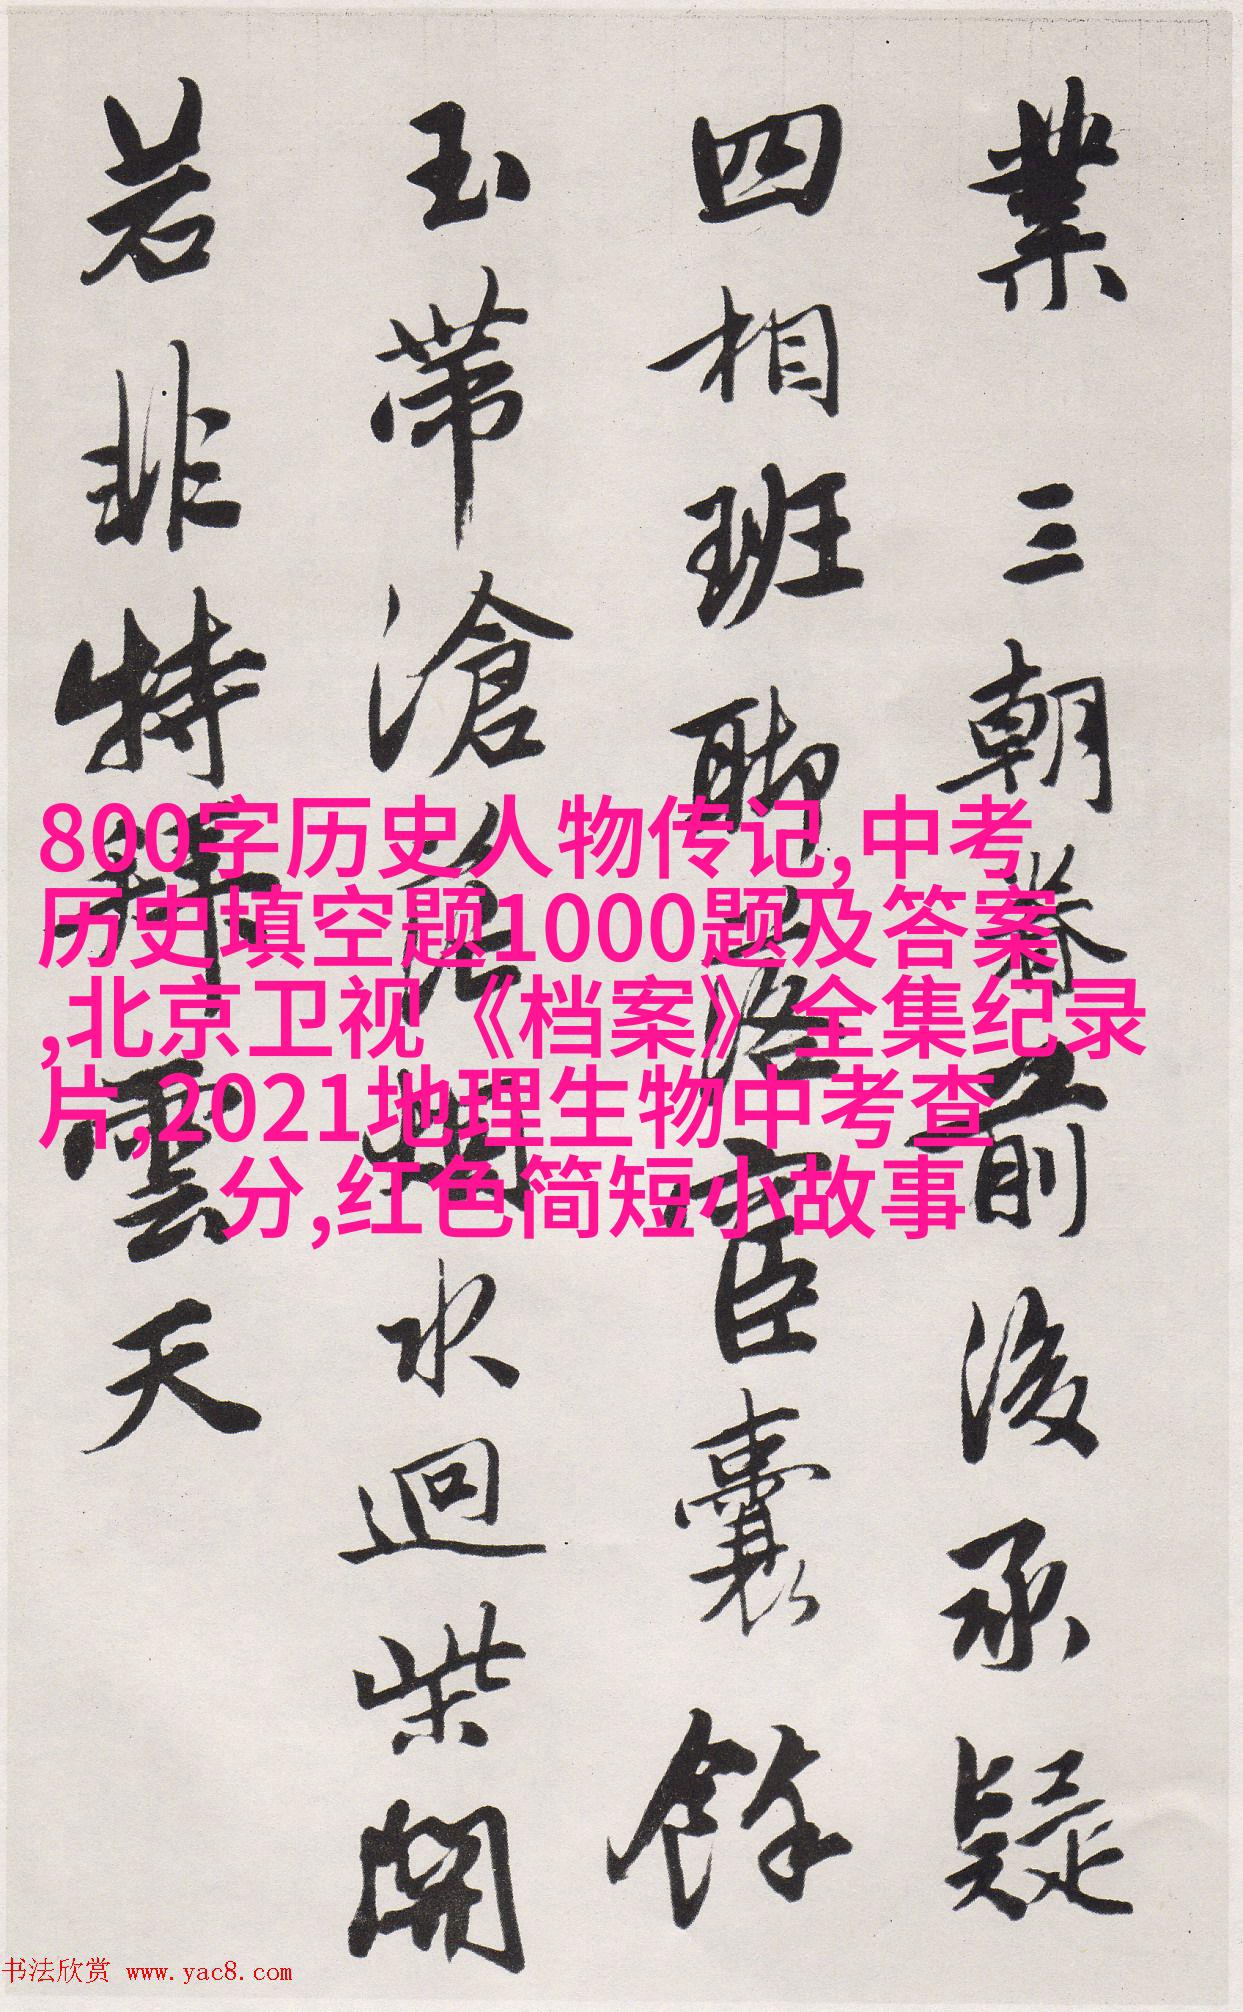 業 三朝眷前後承疑
四相班聊落臣囊餘
玉帶滄水迴柴開
若非特拜雲天
800字历史人物传记,中考
历史填空题1000题及答案
,北京卫视《档案》全集纪录
片,2021地理生物中考查
分,红色简短小故事
书法欣赏 www.yac8.com